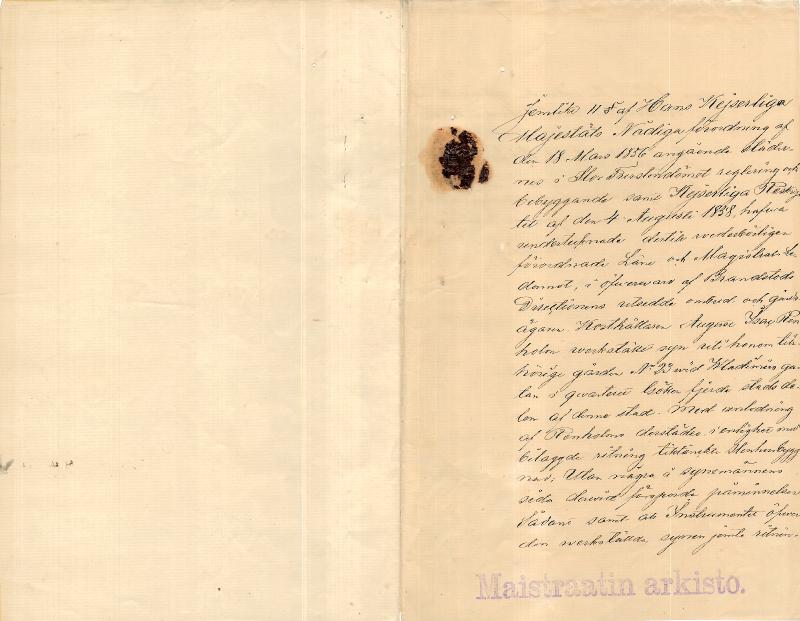 Jemlikt 11 § af Hans Kejserliga
Majestäts Nådiga förordning af
den 18 Mars 1856 angående städer-
nes i Stor Furstendömet reglering och
bebyggande samt Kejserliga
af den 4 Augusti 1858, hafwa
undertecknade dertill wederbörligen
förordnade Läns och Magistrats Le-
damot, i öfwerwaro af Brandstods
Directionens utsedde ombud och gårds
ägaren Kosthållaren August Isac Ren-
holm werkstält syn uti honom till-
hörige gården No 23 wid Wladimirs ga-
tan i qwarteret fjerde stadsde-
len af denna stad. Med anledning
af Renholms derstädes i enlighet med
bilagde ritning tilltänkta Stenhusbygg-
nad; Utan några å synemännens
sida derwid försporde påminnelser
Sådant samt att Instrumentet öfwer
den werkstälda synen jemte ritnin-
Maistraatin arkisto.